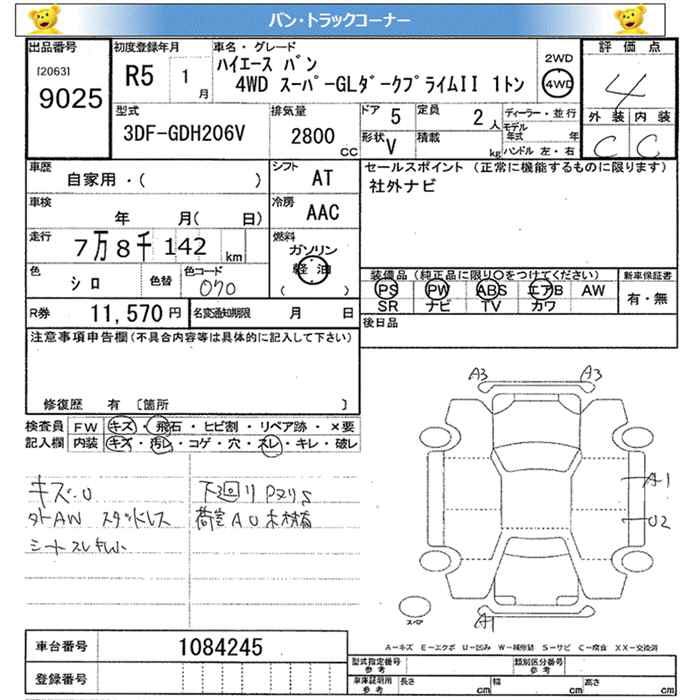 バン・トラックコーナー
出品番号 初度登録年月 車名・グレード 2WD 評価点
[2063] R5 1月 ハイエース バン 4WD 4
9025 4WD スーパーGLダークプライムII 1トン
外装 内装
型式 排気量 ドア 5 定員 2人 ディーラー・並行 C C
3DF-GDH206V 2800 CC 形状 V 積載 kg モデル年式 年
ハンドル 左・右
車歴 シフト セールスポイント (正常に機能するものに限ります)
自家用・( ) AT 社外ナビ
車検 年 月( 日) 冷房 AAC
走行 7万8千142km 燃料
ガソリン
軽油
( )
色 シロ 色替 色コード 070
装備品(純正品に限り○をつけてください) 新車保証書
PS PW ABS エアB AW 有・無
SR ナビ TV カワ
R券 11,570円 名変通知期限 月 日
後日品
注意事項申告欄(不具合内容等は具体的に記入して下さい)
修復歴 有 [箇所 ]
検査員 FW キズ・飛石・ヒビ割・リペア跡・×要
記入欄 内装 キズ・汚レ・コゲ・穴・スレ・キレ・破レ
キズ.U 下廻リ Pヌリ S
タトAW スタッドレス 荷室AU
シートスレ
A3 A3
A1
U2
A1
スペア
A-キズ E-エクボ U-凹み W-補修跡 S-サビ C-腐食 XX-交換済
車台番号 1084245
登録番号
型式指定番号 参考 類別区分番号 参考
車庫証明用 参考 長さ cm 幅 cm 高さ cm